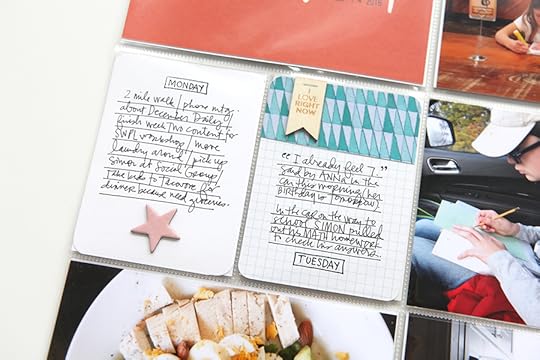 2016
MONDAY
2 mile walk / phone mtg.
about December Dailies
finish week TWO content for
SWPL workshop / more
laundry around / pick up
Simon at Social Group /
take kids to Panera for
dinner because need groceries.
I
LOVE
RIGHT
NOW
" I already feel 7. "
said by ANNA in the
car this morning (her
BIRTHDAY is tomorrow)
in the car on the way to
school SIMON pulled
out his MATH homework
to check his answers.
TUESDAY